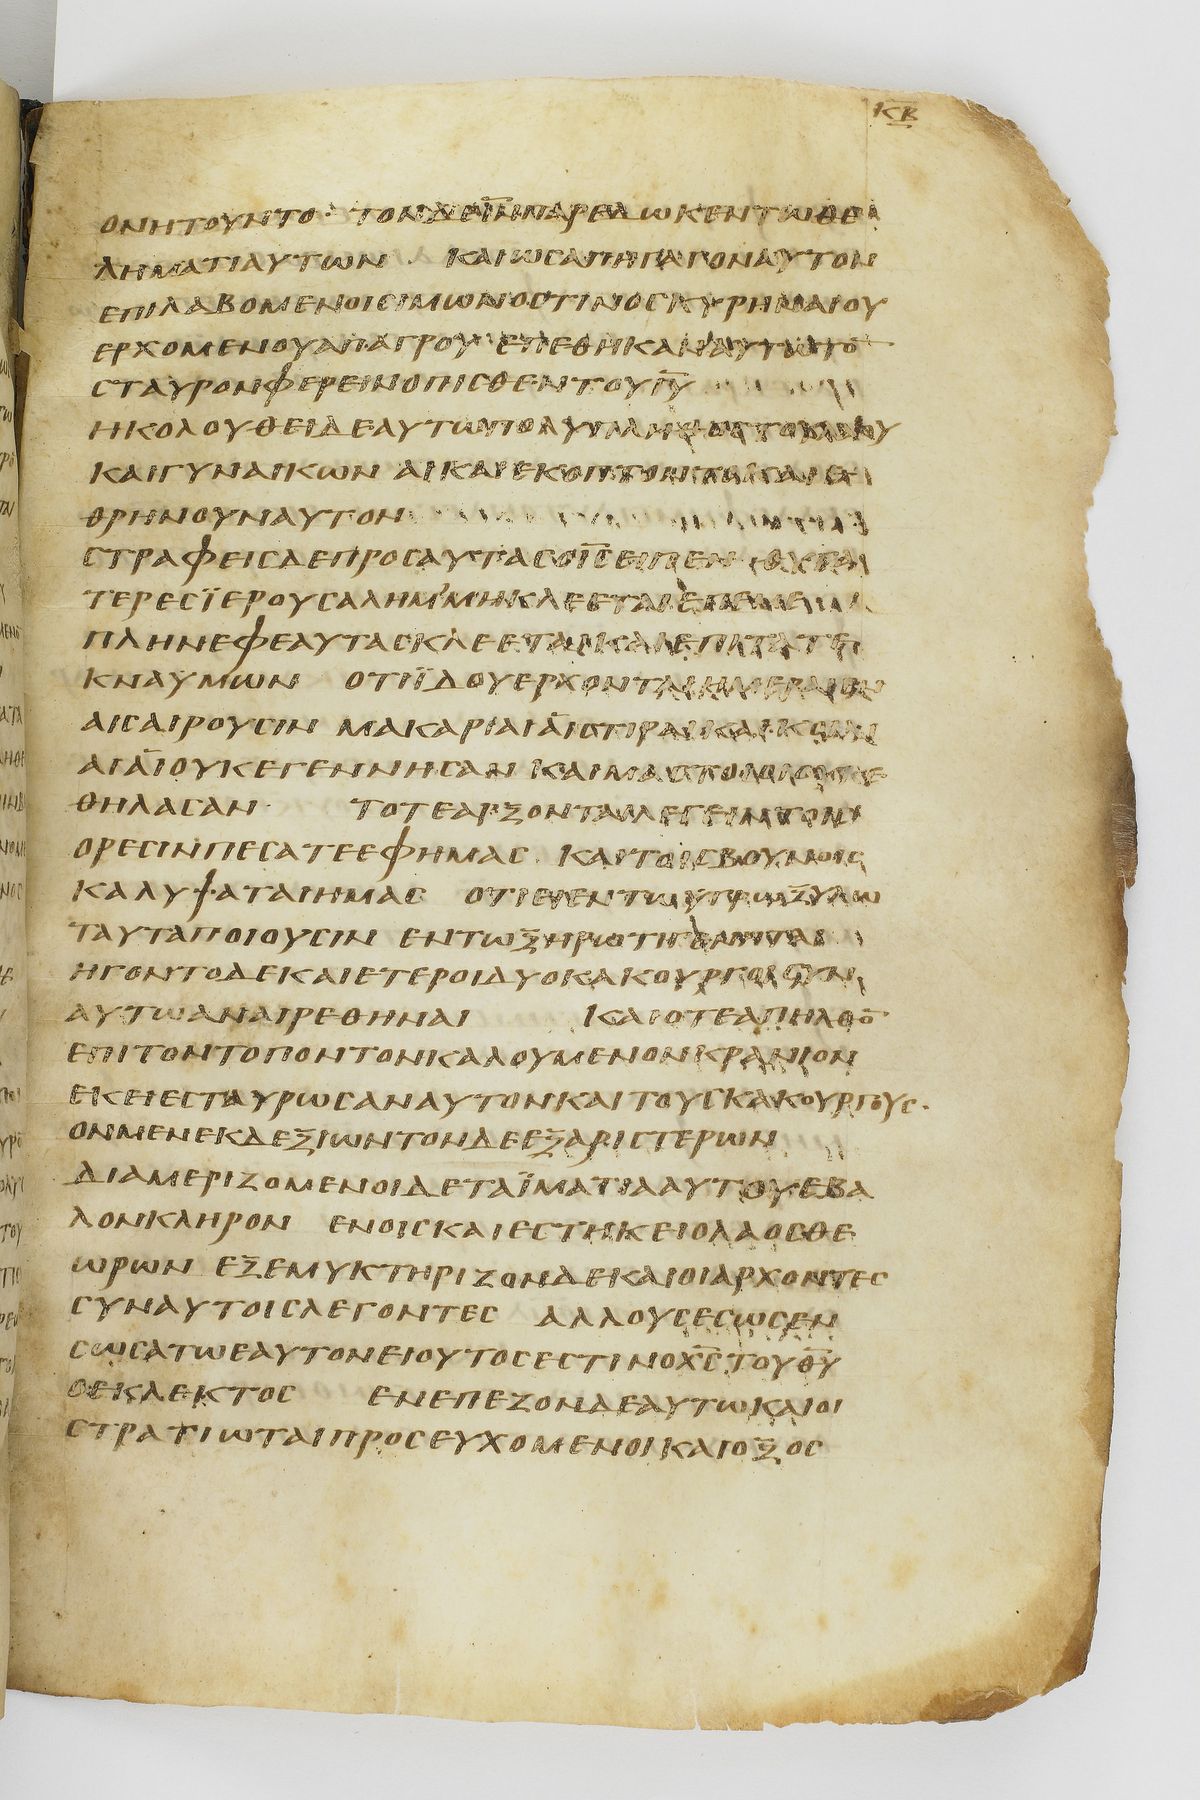 ΚΒ
ΟΝΗΤΟΥΝΤΟ· ΤΟΝΔΕΙΝΠΑΡΕΔΩΚΕΝΤΩΘΕ
ΛΗΜΑΤΙΑΥΤΩΝ ΚΑΙΩΣΑΠΗΓΑΓΟΝΑΥΤΟΝ
ΕΠΙΛΑΒΟΜΕΝΟΙΣΙΜΩΝΟΣΤΙΝΟΣΚΥΡΗΝΑΙΟΥ
ΕΡΧΟΜΕΝΟΥΑΠΑΓΡΟΥ ΕΠΕΘΗΚΑΝΑΥΤΩΤΟ
ΣΤΑΥΡΟΝΦΕΡΕΙΝΟΠΙΣΘΕΝΤΟΥΙΥ
ΗΚΟΛΟΥΘΕΙΔΕΑΥΤΩΠΟΛΥΠΛΗΘΟΣΤΟΥΛΑΟΥ
ΚΑΙΓΥΝΑΙΚΩΝ ΑΙΚΑΙΕΚΟΠΤΟΝΤΟΚΑΙΕ
ΘΡΗΝΟΥΝΑΥΤΟΝ
ΣΤΡΑΦΕΙΣΔΕΠΡΟΣΑΥΤΑΣΟΙΣΕΙΠΕΝ ΘΥΓΑ
ΤΕΡΕΣΪΕΡΟΥΣΑΛΗΜ ΜΗΚΛΕΕΤΑΙΕΠΕΜΕ
ΠΛΗΝΕΦΕΑΥΤΑΣΚΛΕΕΤΑΙΚΑΙΕΠΙΤΑΤΕ
ΚΝΑΥΜΩΝ ΟΤΙΪΔΟΥΕΡΧΟΝΤΑΙΗΜΕΡΑΙΕΝ
ΑΙΣΑΙΡΟΥΣΙΝ ΜΑΚΑΡΙΑΙΑΙΣΤΙΡΑΙΚΑΙΚΟΙΛΙ
ΑΙΑΙΟΥΚΕΓΕΝΝΗΣΑΝ ΚΑΙΜΑΣΤΟΙΟΙΟΥΚΕ
ΘΗΛΑΣΑΝ ΤΟΤΕΑΡΞΟΝΤΑΙΛΕΓΕΙΝΤΟΙΣ
ΟΡΕΣΙΝΠΕΣΑΤΕΕΦΗΜΑΣ ΚΑΙΤΟΙΣΒΟΥΝΟΙΣ
ΚΑΛΥΨΑΤΑΙΗΜΑΣ ΟΤΙΕΙΕΝΤΩΥΓΡΩΞΥΛΩ
ΤΑΥΤΑΠΟΙΟΥΣΙΝ ΕΝΤΩΞΗΡΩΤΙΓΕΝΗΤΑΙ
ΗΓΟΝΤΟΔΕΚΑΙΕΤΕΡΟΙΔΥΟΚΑΚΟΥΡΓΟΙΣΥΝ
ΑΥΤΩΑΝΑΙΡΕΘΗΝΑΙ ΚΑΙΟΤΕΑΠΗΛΘΟ̄
ΕΠΙΤΟΝΤΟΠΟΝΤΟΝΚΑΛΟΥΜΕΝΟΝΚΡΑΝΙΟΝ
ΕΚΕΙΕΣΤΑΥΡΩΣΑΝΑΥΤΟΝΚΑΙΤΟΥΣΚΑΚΟΥΡΓΟΥΣ·
ΟΝΜΕΝΕΚΔΕΞΙΩΝΤΟΝΔΕΕΞΑΡΙΣΤΕΡΩΝ
ΔΙΑΜΕΡΙΖΟΜΕΝΟΙΔΕΤΑΪΜΑΤΙΑΑΥΤΟΥΕΒΑ
ΛΟΝΚΛΗΡΟΝ ΕΝΟΙΣΚΑΙΕΣΤΗΚΕΙΟΛΑΟΣΘΕ
ΩΡΩΝ ΕΞΕΜΥΚΤΗΡΙΖΟΝΔΕΚΑΙΟΙΑΡΧΟΝΤΕΣ
ΣΥΝΑΥΤΟΙΣΛΕΓΟΝΤΕΣ ΑΛΛΟΥΣΕΣΩΣΕΝ
ΣΩΣΑΤΩΕΑΥΤΟΝΕΙΟΥΤΟΣΕΣΤΙΝΟΧΣΤΟΥΘΥ
ΟΕΚΛΕΚΤΟΣ ΕΝΕΠΕΖΟΝΔΕΑΥΤΩΚΑΙΟΙ
ΣΤΡΑΤΙΩΤΑΙΠΡΟΣΕΥΧΟΜΕΝΟΙΚΑΙΟΞΟΣ